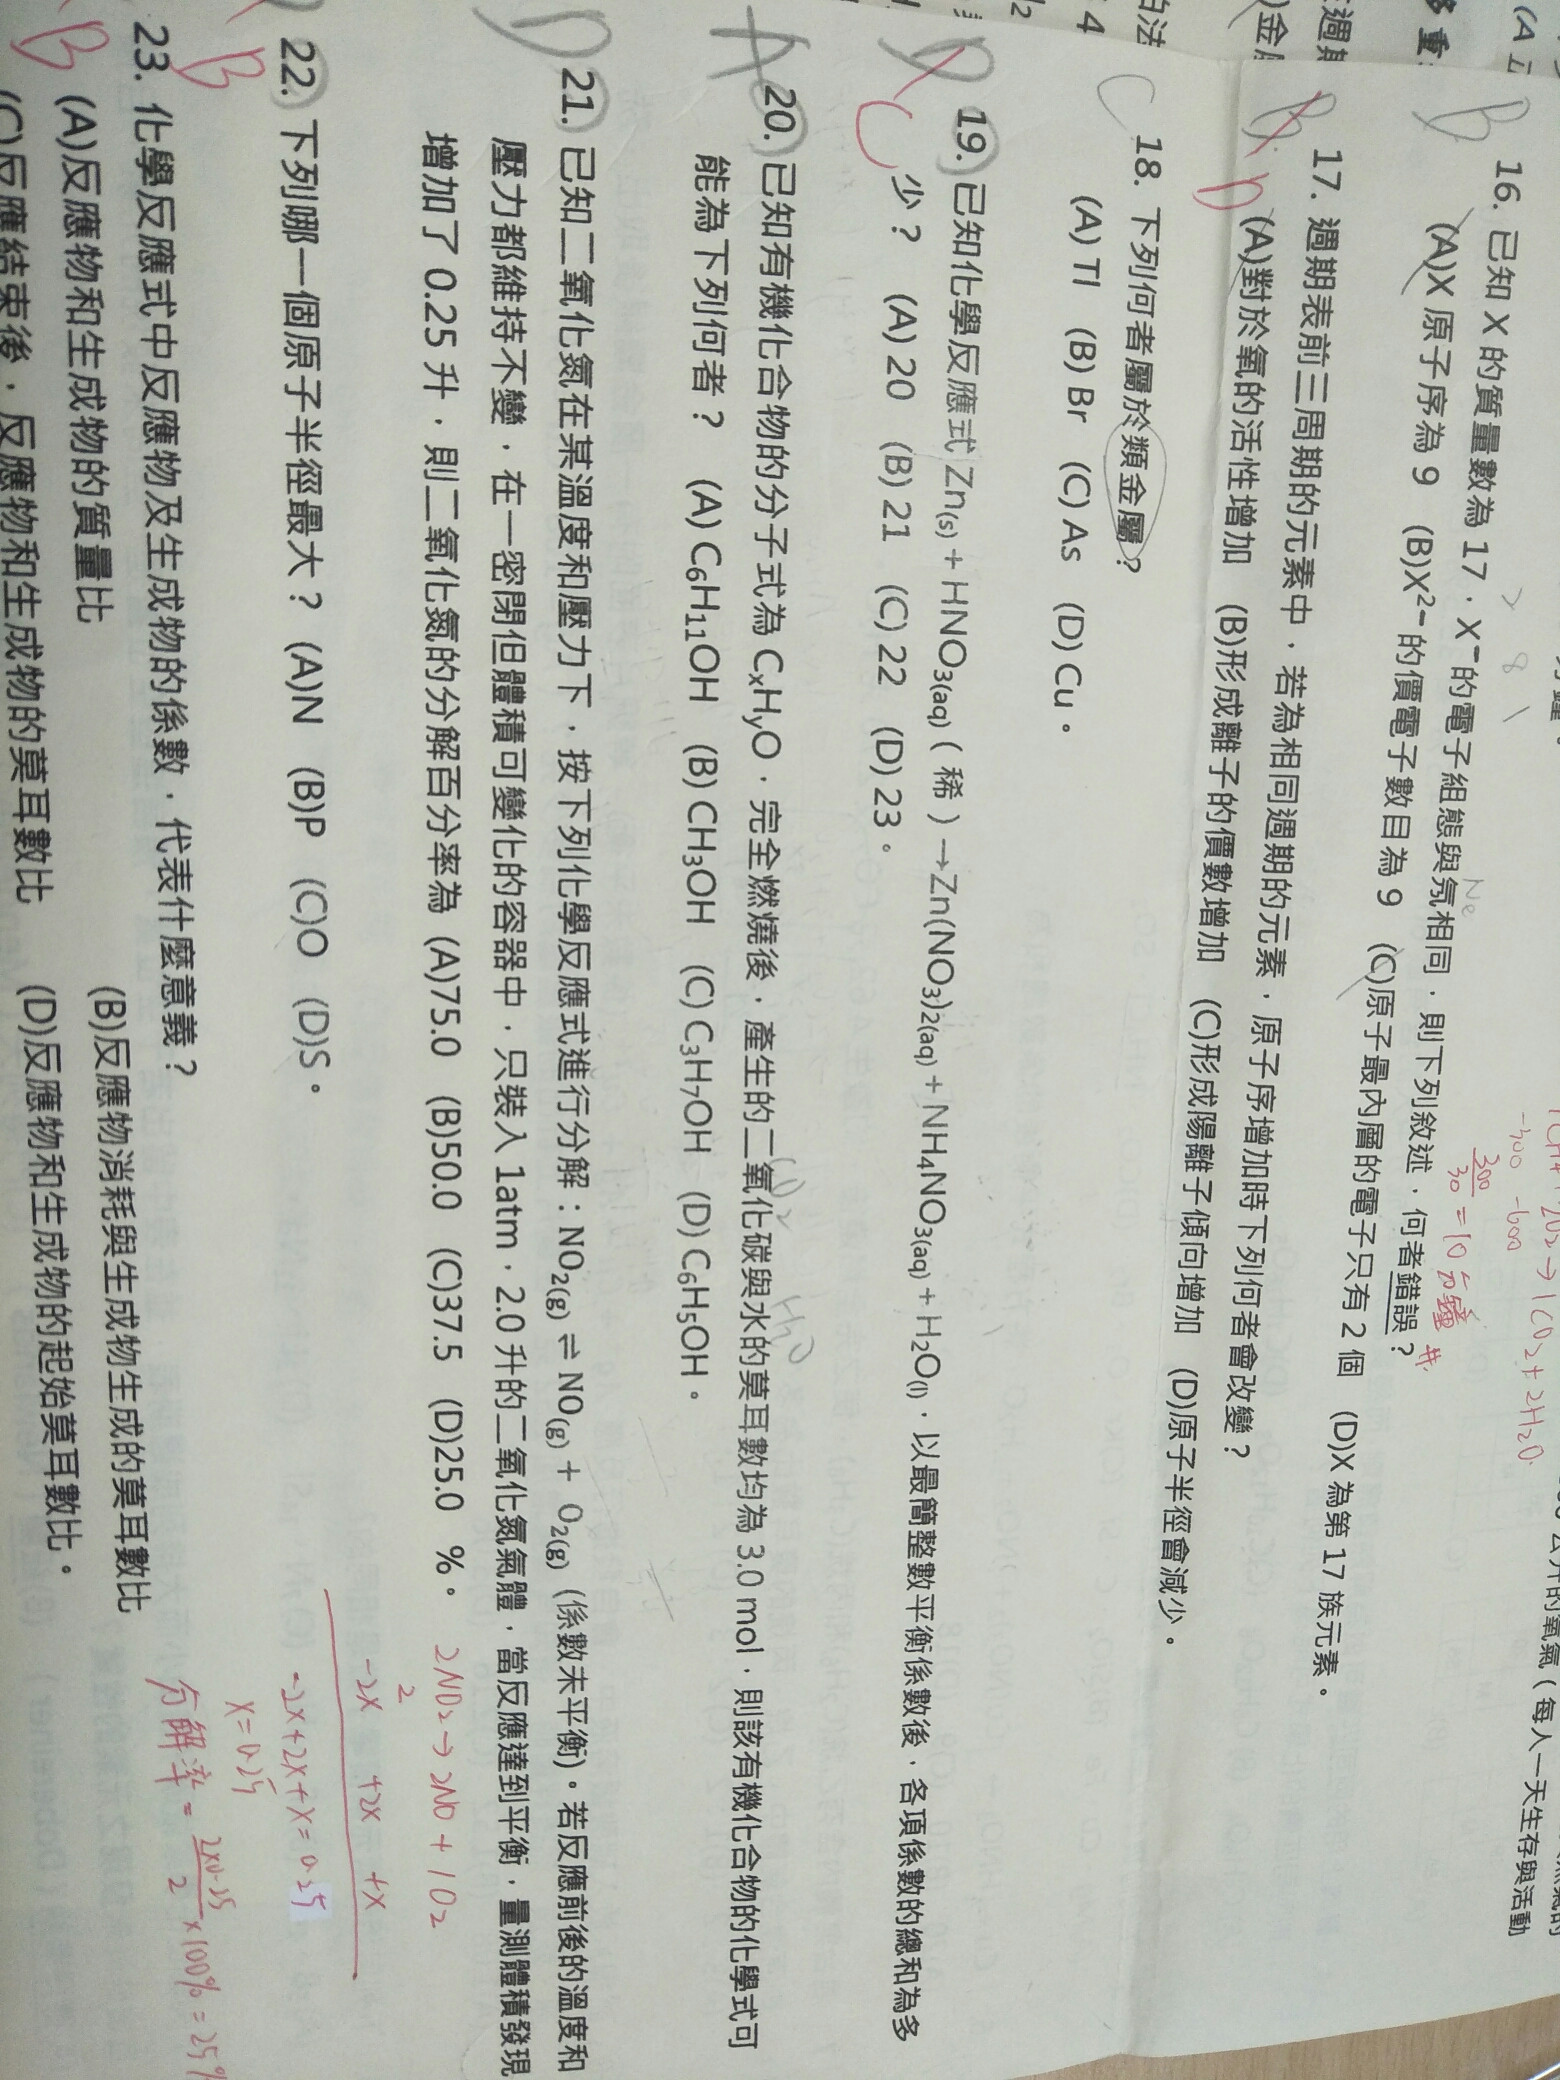 B 16. 已知 X 的質量數為 17，X⁻的電子組態與氖相同，則下列敘述，何者錯誤？
Ne
2 8 1
(A)X 原子序為 9 (B)X²⁻的價電子數目為 9 (C)原子最內層的電子只有 2 個 (D)X 為第 17 族元素。
-300 -600
300/30 = 10 分鐘
B D 17. 週期表前三周期的元素中，若為相同週期的元素，原子序增加時下列何者會改變？
(A)對於氧的活性增加 (B)形成離子的價數增加 (C)形成陽離子傾向增加 (D)原子半徑會減少。
C 18. 下列何者屬於類金屬？
(A) Tl (B) Br (C) As (D) Cu。
D C 19. 已知化學反應式 Zn(s) + HNO3(aq)（稀）→Zn(NO3)2(aq) + NH4NO3(aq) + H2O(l)，以最簡整數平衡係數後，各項係數的總和為多
少？ (A) 20 (B) 21 (C) 22 (D) 23。
A 20. 已知有機化合物的分子式為 CxHyO，完全燃燒後，產生的二氧化碳與水的莫耳數均為 3.0 mol，則該有機化合物的化學式可
能為下列何者？ (A) C6H11OH (B) CH3OH (C) C3H7OH (D) C6H5OH。
D 21. 已知二氧化氮在某溫度和壓力下，按下列化學反應式進行分解：NO2(g) ⇌ NO(g) + O2(g) (係數未平衡)。若反應前後的溫度和
壓力都維持不變，在一密閉但體積可變化的容器中，只裝入 1atm，2.0 升的二氧化氮氣體，當反應達到平衡，量測體積發現
增加了 0.25 升，則二氧化氮的分解百分率為 (A)75.0 (B)50.0 (C)37.5 (D)25.0 %。
2NO2→2NO + 1O2
2
-2x +2x +x
-2x+2x+x=0.25
x=0.25
分解率 = 2×0.25/2 ×100% = 25%
B 22. 下列哪一個原子半徑最大？ (A)N (B)P (C)O (D)S。
B 23. 化學反應式中反應物及生成物的係數，代表什麼意義？
(A)反應物和生成物的質量比 (B)反應物消耗與生成物生成的莫耳數比
(C)反應結束後，反應物和生成物的莫耳數比 (D)反應物和生成物的起始莫耳數比。